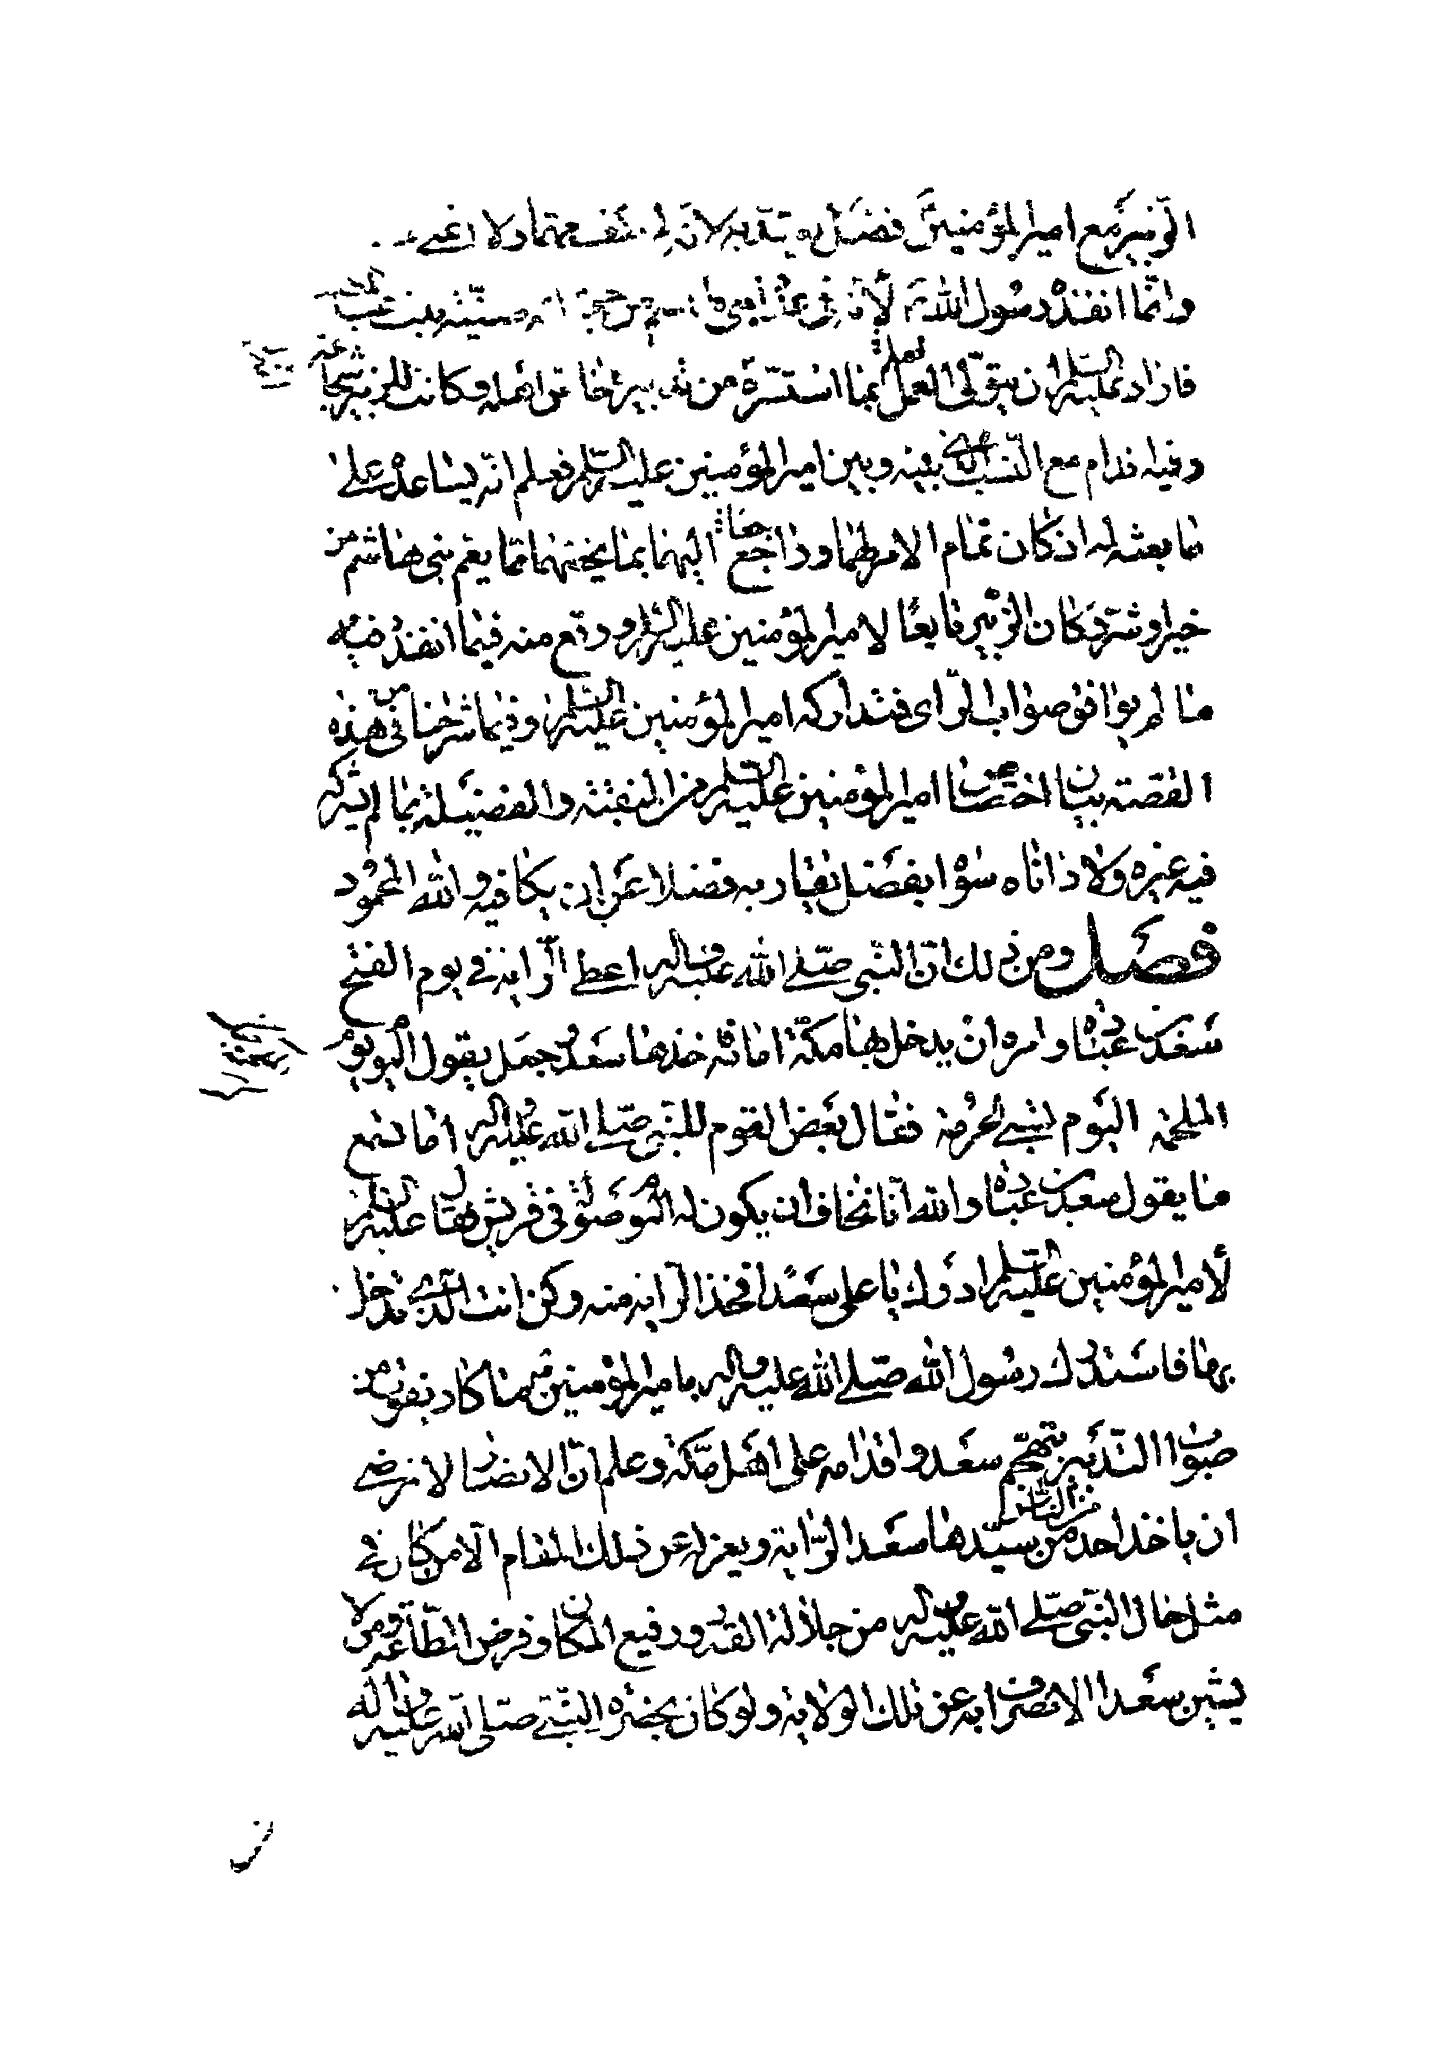 الزبير مع امير المؤمنين فضل يعتد به لانه لم يكف مهما ولا اغنى
وانما انفذه رسول الله لأنه في عداد بني هاشم من جهة امه صفية بنت عبد المطلب
فاراد عليه السلام ان يتولى العمل بما استسر به من تدبيره خاص اهله وكانت للزبير شجاعة
وفيه اقدام مع النسب الذي بينه وبين امير المؤمنين عليه السلم فعلم انه يساعده على
ما بعثه له اذ كان تمام الامر لهما وراجعا اليهما بما يخصهما مما يعم بني هاشم من
خير او شر وكان الزبير تابعا لامير المؤمنين عليه السلم ووقع منه فيما انفذ فيه
ما لم يوافق صواب الراى فتداركه امير المؤمنين عليه السلم وفيما شرحناه من هذه
القصة بيان اختصاص امير المؤمنين عليه السلم من المنقبة والفضيلة بما لم يشركه
فيه غيره ولا داناه سواه بفضل يقاربه فضلا عن ان يكافيه والله المحمود
فصل ومن ذلك ان النبى صلى الله عليه واله اعطى الراية في يوم الفتح
سعد بن عبادة وامره ان يدخل بها مكة امامه فاخذها سعد وجعل يقول اليوم يوم
الملحمة اليوم تسبى الحرمة فقال بعض القوم للنبى صلى الله عليه واله اما تسمع
ما يقول سعد بن عبادة والله انا نخاف ان يكون له اليوم صولة في قريش فقال عليه السلم
لأمير المؤمنين عليه السلم ادرك يا على سعدا فخذ الراية منه وكن انت الذي تدخل
بها فاستدرك رسول الله صلى الله عليه واله بامير المؤمنين ع ما كاد يفوت من
صواب التدبير بتهجم سعد واقدامه على اهل مكة وعلم ان الانصار لا ترضى
ان ياخذ احد من الناس من سيدها سعد الراية ويعزله عن ذلك المقام الا من كان في
مثل حال النبى صلى الله عليه واله من جلالة القدر ورفيع المكان وفرض الطاعة ومن لا
يشين سعدا الانصراف به عن تلك الولاية ولو كان بحضرة النبي صلى الله عليه واله